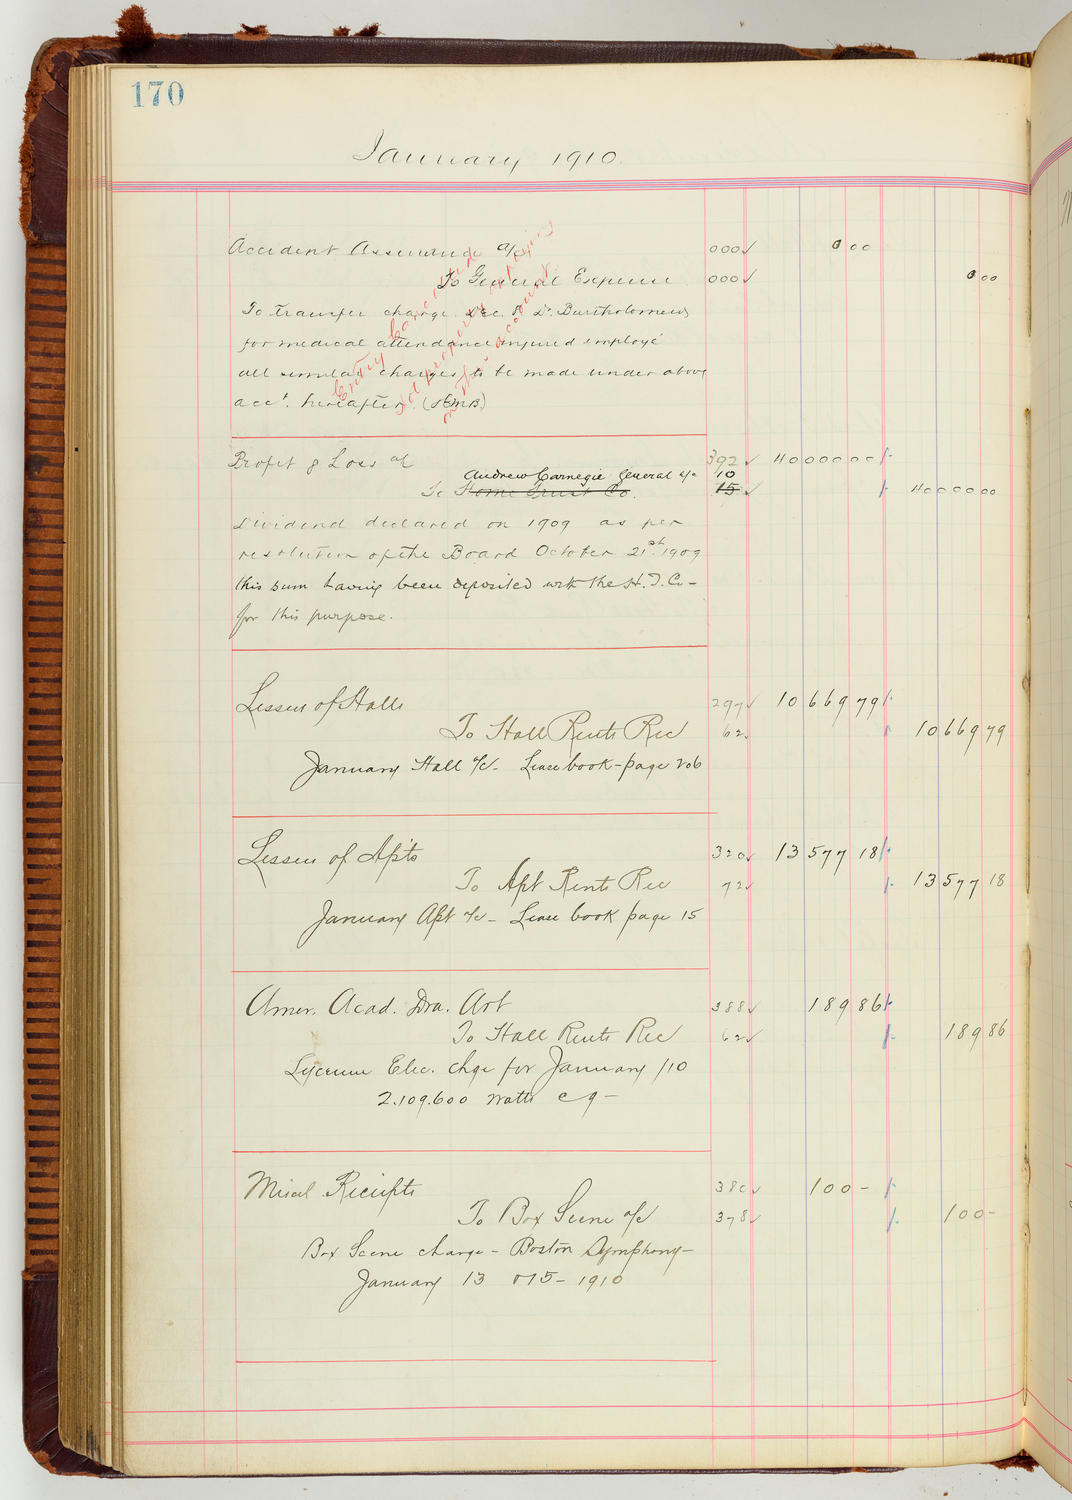 170
January 1910.
Accident Assurance a/c 000 0 00
To General Expense 000 0 00
To transfer charge Dec. Dr. Bartholomews
for medical attendance injured employé
all similar charges to be made under above
acct. hereafter. (SEMB)
Entry
not property
account
Profit & Loss a/c 392 40000 00
Andrew Carnegie General a/c 10
To Home Trust Co. 15 40000 00
Dividend declared on 1909 as per
resolution of the Board October 21st 1909
this sum having been deposited with the H.T. Co-
for this purpose.
Lessees of Halls 297 10669 79
To Hall Rents Rec 62 10669 79
January Hall a/c- Lease book-page 206
Lessees of Apts 320 13577 18
To Apt Rents Rec 72 13577 18
January Apt a/c- Lease book page 15
Amer. Acad. Dra. Art 388 189 86
To Hall Rents Rec 62 189 86
Lyceum Elec. chge for January /10
2.109.600 watts @ 9-
Miscl Receipts 380 100-
To Box Scene a/c 378 100-
Box Scene charge - Boston Symphony-
January 13 & 15- 1910